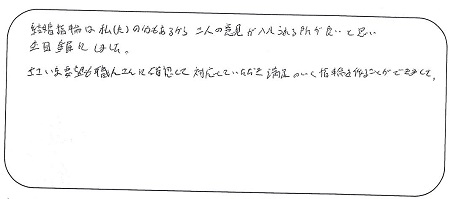 結婚指輪は私(夫)の分もあるから 二人の意見が入れられる所が良いと思い
杢目金屋にしました。
細かい要望も職人さんに確認して対応していただき満足のいく指輪を作ることができました。